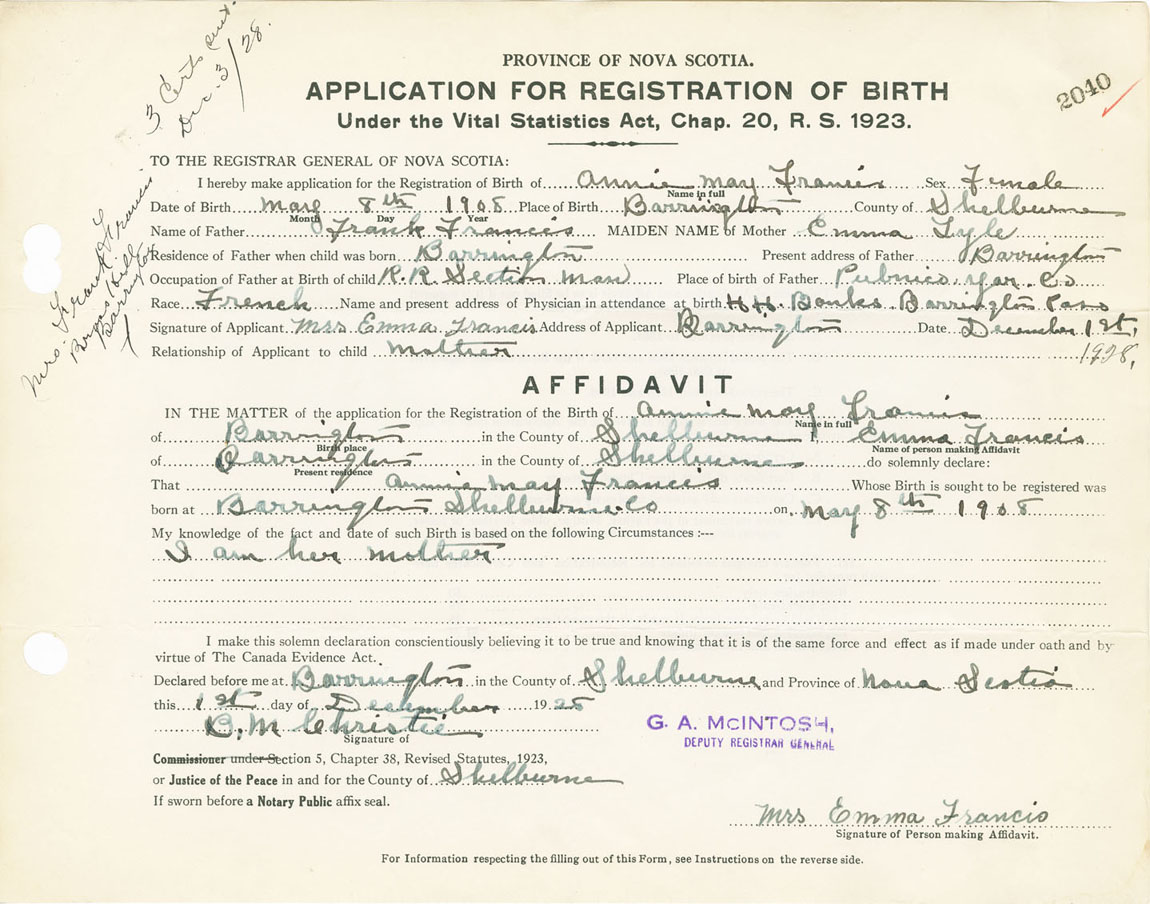 3 Certs sent
Dec. 3/28.
2040
PROVINCE OF NOVA SCOTIA.
APPLICATION FOR REGISTRATION OF BIRTH
Under the Vital Statistics Act, Chap. 20, R. S. 1923.
Mrs. Frank Francis
Barrington
TO THE REGISTRAR GENERAL OF NOVA SCOTIA:
I hereby make application for the Registration of Birth of Annie May Francis Sex Female
Name in full
Date of Birth May 8th 1908 Place of Birth Barrington County of Shelburne
Month Day Year
Name of Father Frank Francis MAIDEN NAME of Mother Emma Lyle
Residence of Father when child was born Barrington Present address of Father Barrington
Occupation of Father at Birth of child R.R. Section Man Place of birth of Father Pubnico Yar. Co
Race French Name and present address of Physician in attendance at birth H.H. Banks Barrington Pass
Signature of Applicant Mrs Emma Francis Address of Applicant Barrington Date December 1st,
Relationship of Applicant to child mother 1928,
AFFIDAVIT
IN THE MATTER of the application for the Registration of the Birth of Annie May Francis
Name in full
of Barrington in the County of Shelburne I Emma Francis
Birth place Name of person making Affidavit
of Barrington in the County of Shelburne do solemnly declare:
Present residence
That Annie May Francis Whose Birth is sought to be registered was
born at Barrington Shelburne Co on May 8th 1908
My knowledge of the fact and date of such Birth is based on the following Circumstances :---
I am her mother
I make this solemn declaration conscientiously believing it to be true and knowing that it is of the same force and effect as if made under oath and by
virtue of The Canada Evidence Act.
Declared before me at Barrington in the County of Shelburne and Province of Nova Scotia
this 1st day of December 1928
B. M Christie
Signature of
G. A. McINTOSH,
DEPUTY REGISTRAR GENERAL
Commissioner under Section 5, Chapter 38, Revised Statutes, 1923,
or Justice of the Peace in and for the County of Shelburne
If sworn before a Notary Public affix seal.
Mrs Emma Francis
Signature of Person making Affidavit.
For Information respecting the filling out of this Form, see Instructions on the reverse side.